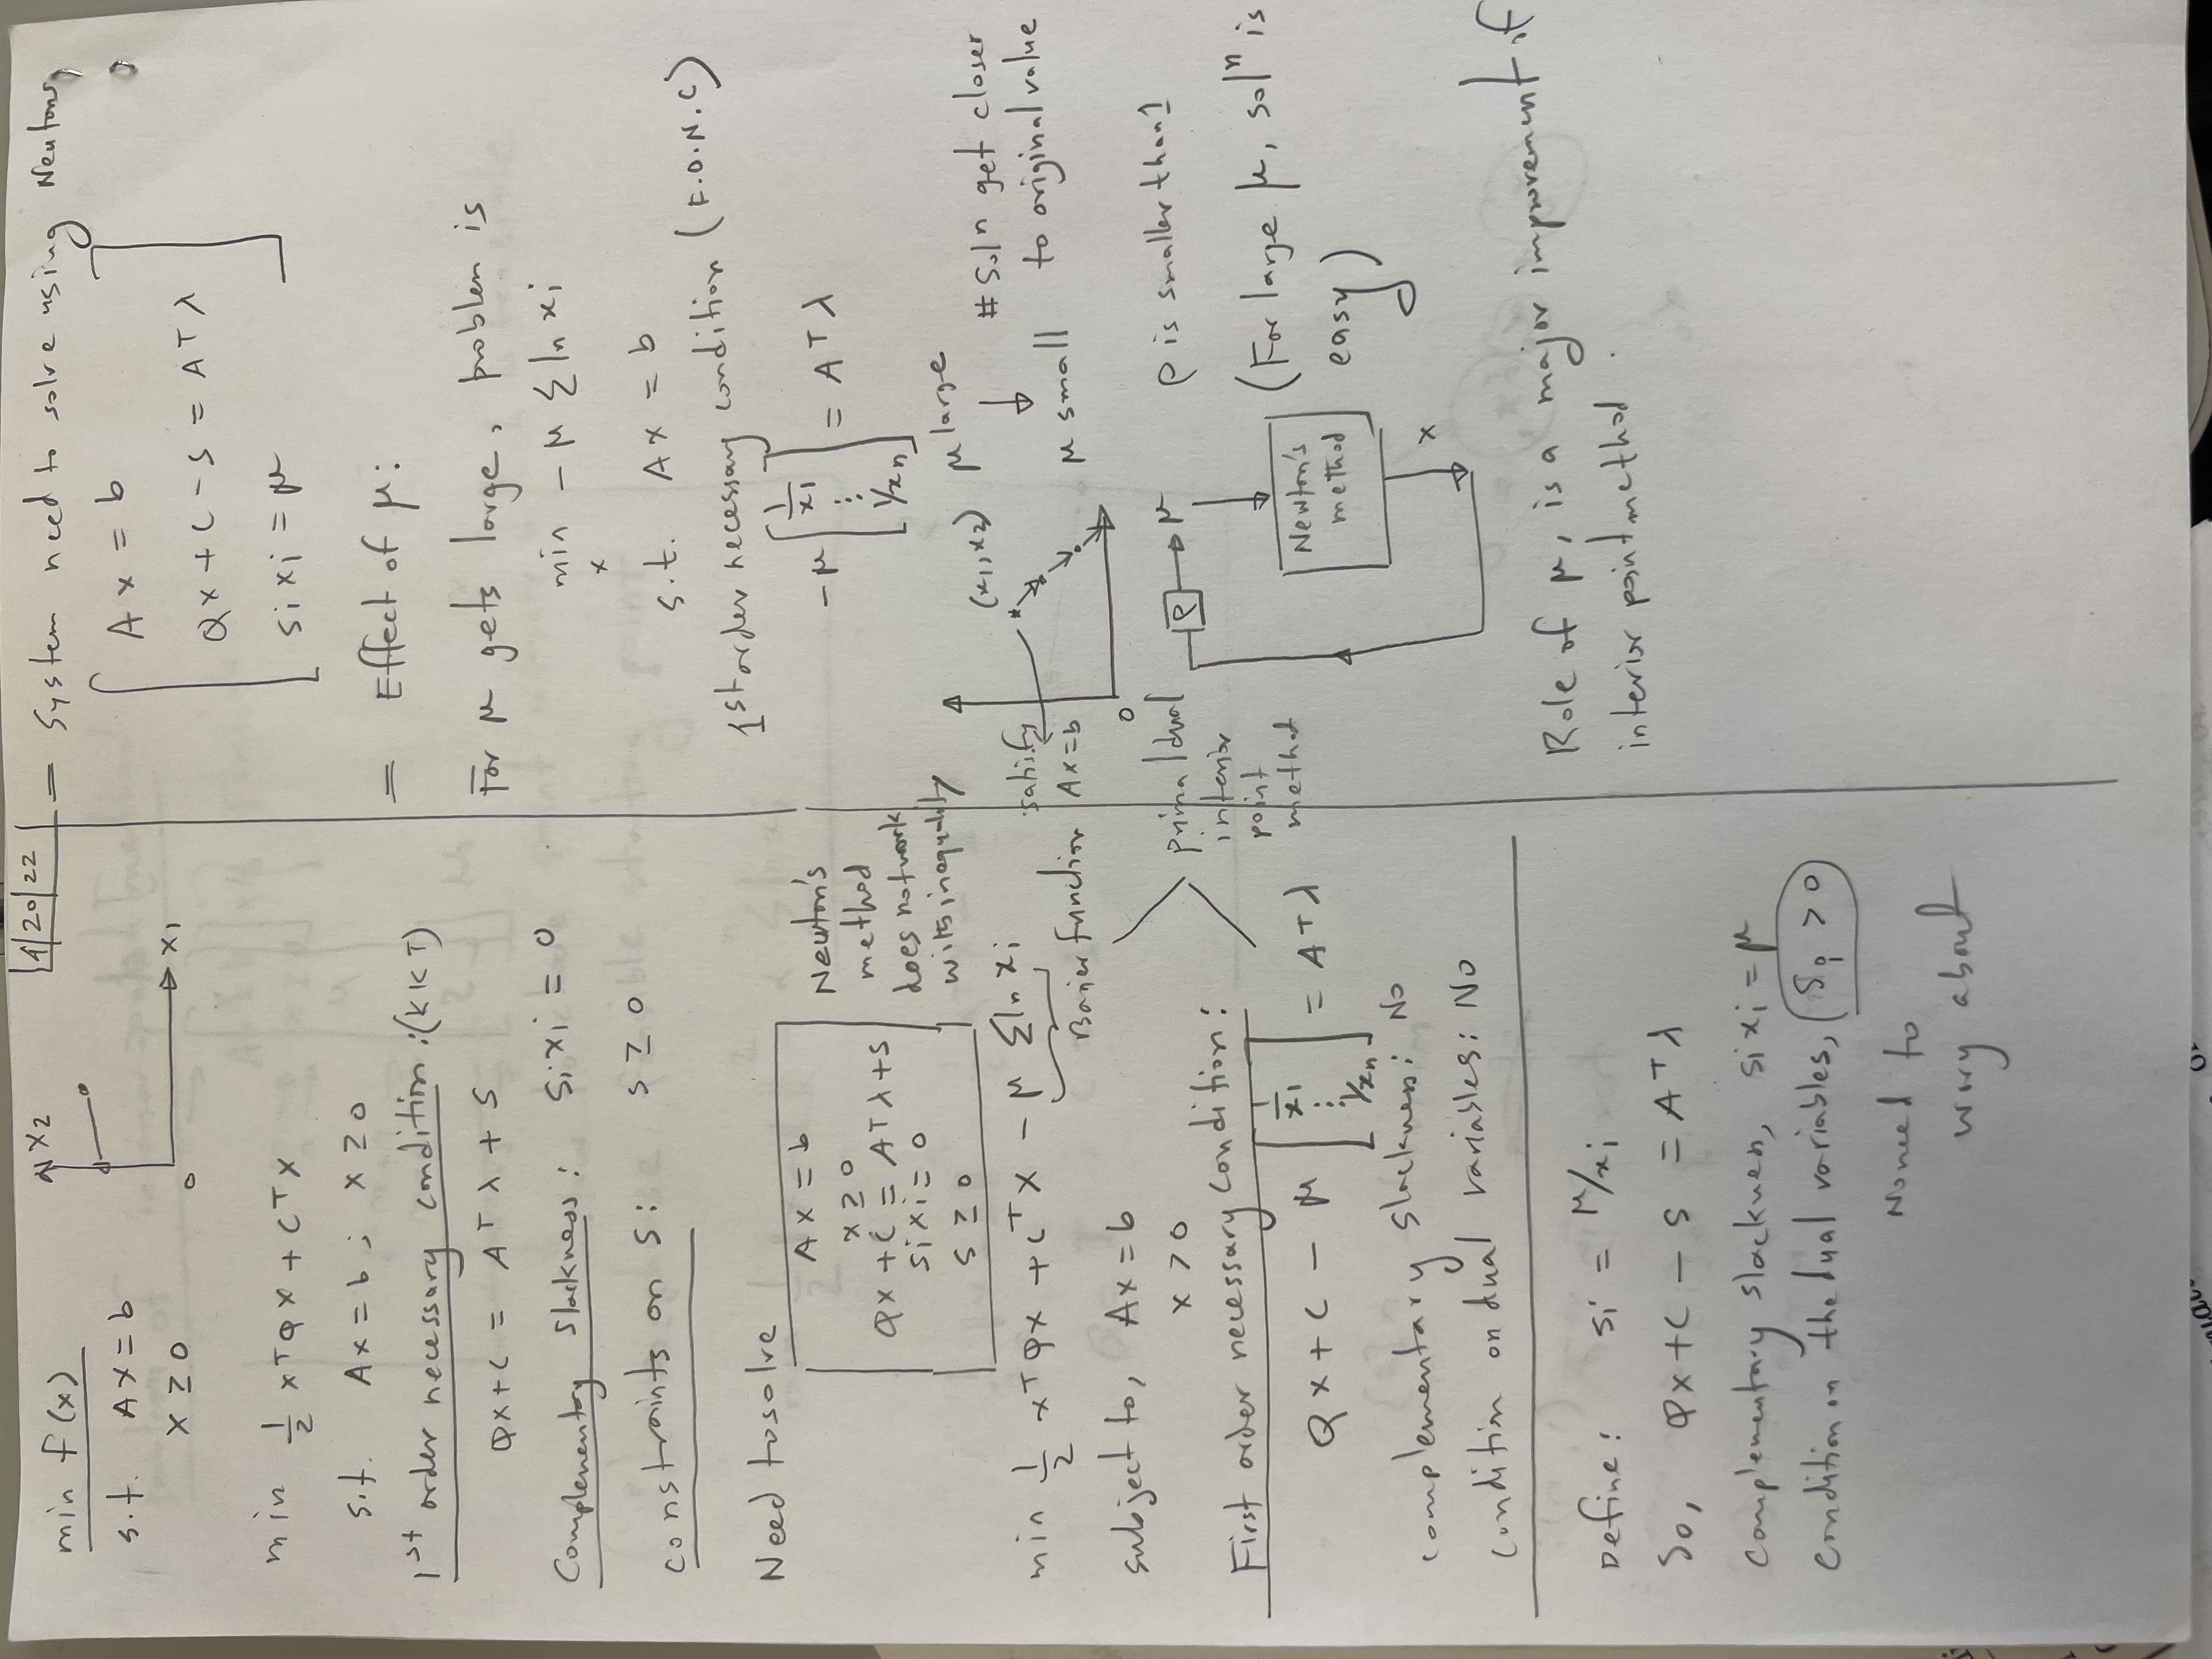 4/20/22
min f(x)
s.t. Ax = b
x ≥ 0
x2
x1
0
min 1/2 xᵀQx + Cᵀx
s.t. Ax = b ; x ≥ 0
1st order necessary condition : (KKT)
Qx + C = Aᵀλ + S
Complementory slackness : sixi = 0
constraints on s : s ≥ 0
Need to solve
Ax = b
x ≥ 0
Qx + C = Aᵀλ + S
sixi = 0
s ≥ 0
Newton's
method
does not work
with inequality
min 1/2 xᵀQx + Cᵀx - μ Σ ln xi
Barier function
subject to, Ax = b
x > 0
primal dual
interior
point
method
First order necessary condition :
Qx + C - μ [1/x1 ⋮ 1/xn] = Aᵀλ
complementary slackness : No
condition on dual variables : No
Define : si = μ/xi
So, Qx + C - s = Aᵀλ
complementary slackness, sixi = μ
condition on the dual variables, si > 0
No need to
wory about
= System need to solve using Newtons,
Ax = b
Qx + C - s = Aᵀλ
sixi = μ
= Effect of μ :
For μ gets large, problem is
min - μ Σ ln xi
x
s.t. Ax = b
1st order necessary condition (F.O.N.C)
-μ [1/x1 ⋮ 1/xn] = Aᵀλ
(x1, x2)
satisfy
Ax = b
0
μ large
↓
μ small
# Solⁿ get closer
to original value
ρ → μ
ρ is smaller than 1
Newton's
method
x
(For large μ, solⁿ is
easy)
Role of μ, is a major improvement of
interior point method .